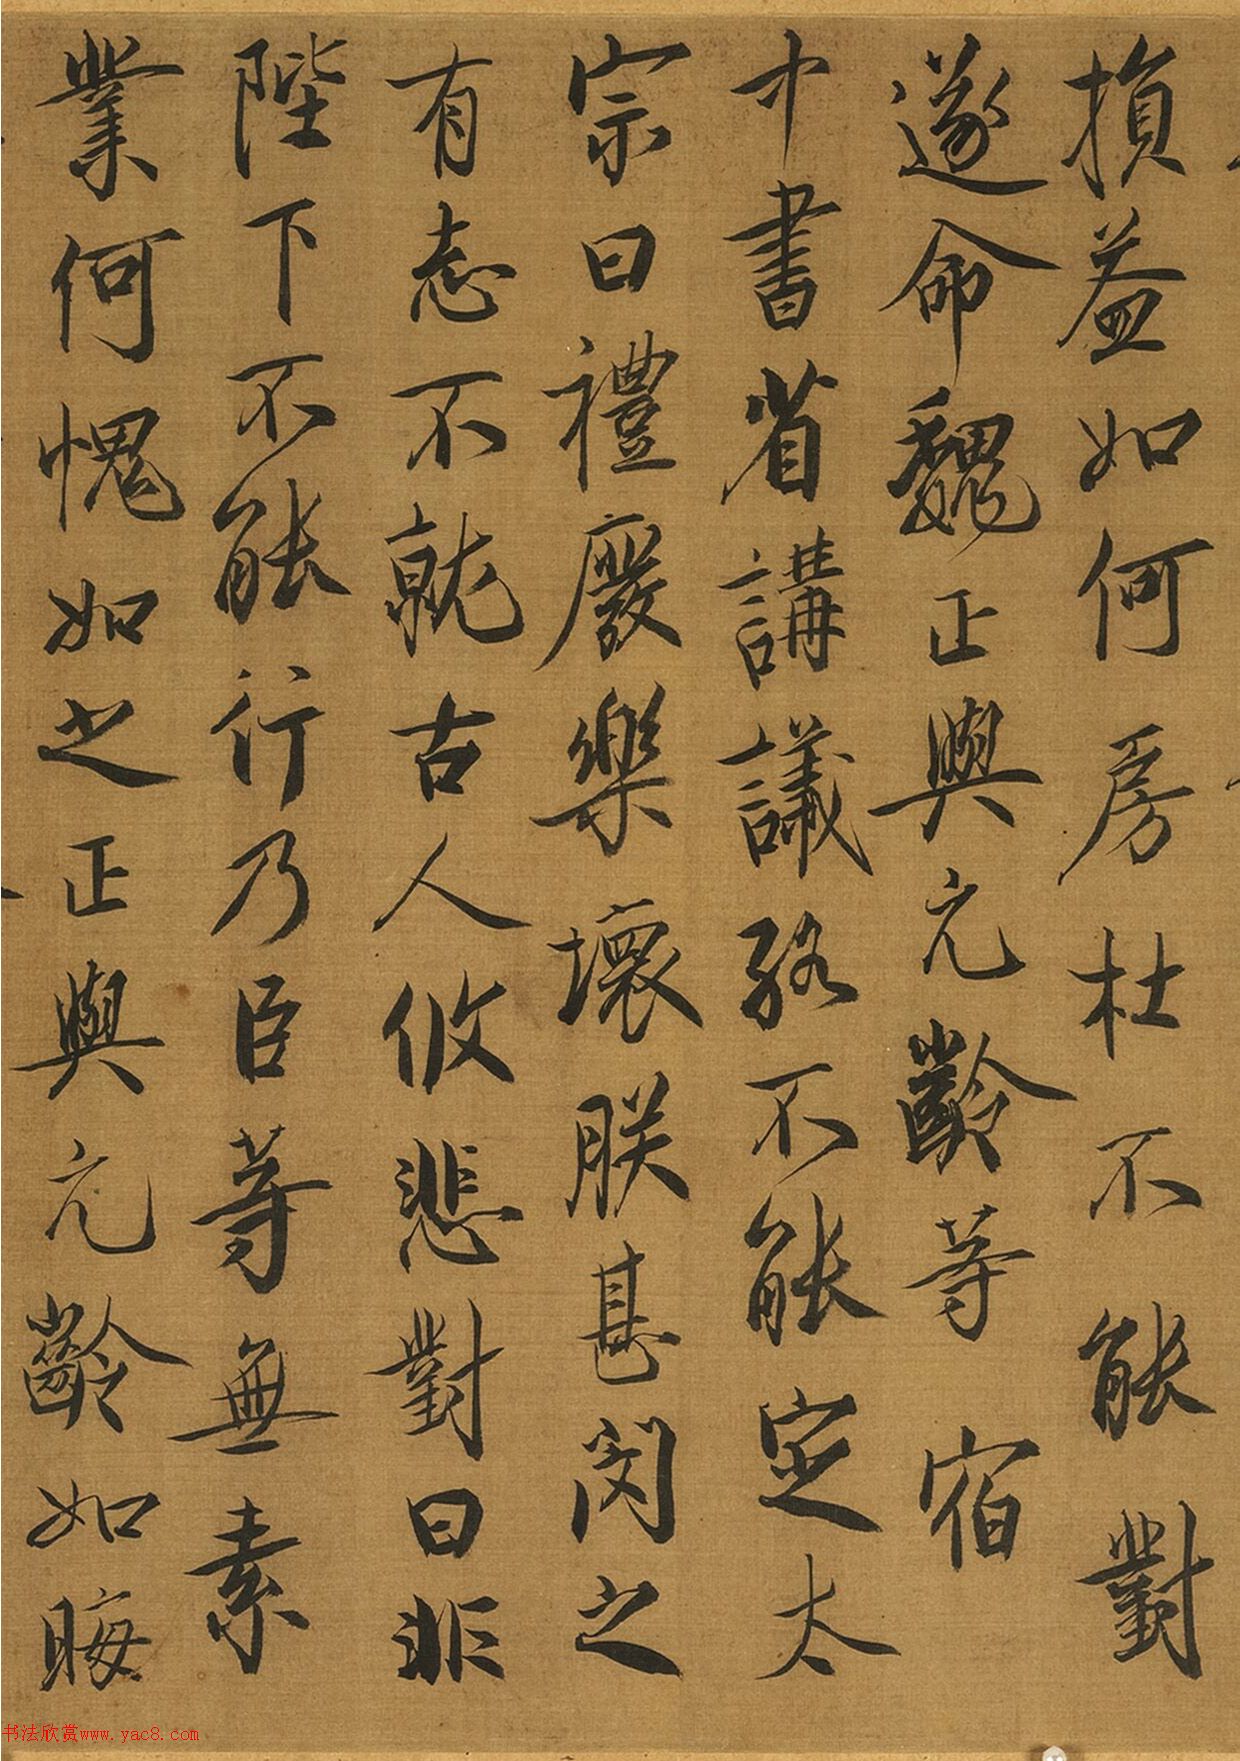 損益如何房杜不能對
遂命魏正與元齡等宿
中書省講議終不能定太
宗曰禮廢樂壞朕甚閔之
有志不就古人攸悲對曰非
陛下不能行乃臣等無素
業何愧如之正與元齡如晦
书法欣赏www.yac8.com